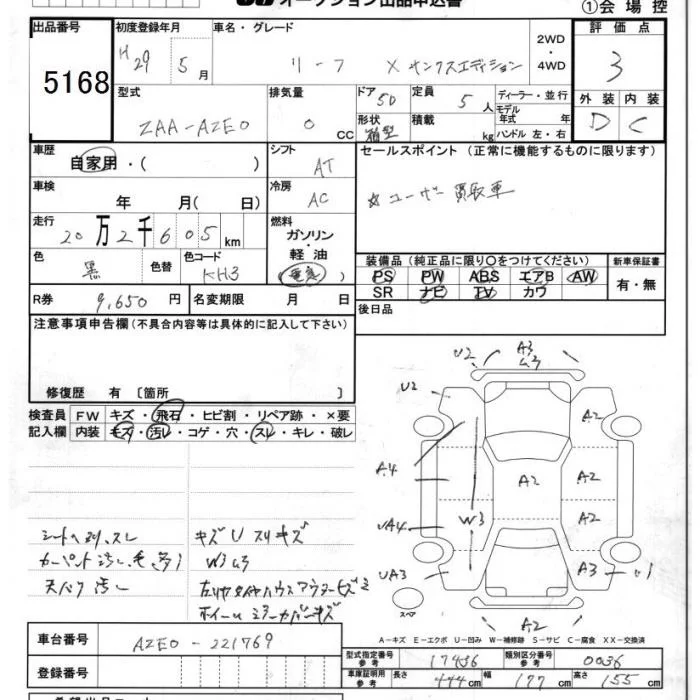 オークション出品申込書
①会場控
出品番号
5168
初度登録年月
H 29 5月
車名・グレード
リーフ X サンクスエディション
2WD・4WD
評価点
3
型式
ZAA-AZE0
排気量
0 CC
ドア 5D
形状 箱型
定員 5人
積載 kg
ディーラー・並行
モデル年式 年
ハンドル 左・右
外装 内装
D C
車歴
自家用・( )
シフト
AT
セールスポイント (正常に機能するものに限ります)
☆ユーザー買取車
車検
年 月( 日)
冷房
AC
走行
20万2千605km
燃料
ガソリン・軽油
(電気)
色
黒
色替
色コード
KH3
装備品 (純正品に限り○をつけてください)
PS PW ABS エアB AW
SR ナビ TV カワ
新車保証書
有・無
R券 9,650円
名変期限 月 日
後日品
注意事項申告欄 (不具合内容等は具体的に記入して下さい)
修復歴 有 〔箇所 〕
検査員記入欄
FW キズ・飛石・ヒビ割・リペア跡・×要
内装 キズ・汚レ・コゲ・穴・スレ・キレ・破レ
シートヘタリ、スレ
カーペント汚レ
天バリ汚レ
キズU スリキズ
W3 ム3
ホイール ミラーカバーキズ
U2
A3
ム3
U2
A2
A4
A2
A2
UA4
W3
A2
UA3
A3
A2
スペア
A-キズ E-エクボ U-凹み W-補修跡 S-サビ C-腐食 XX-交換済
車台番号
AZE0-221769
登録番号
型式指定番号 参考 17436
類別区分番号 参考 0036
車庫証明用 参考 長さ 444cm 幅 177cm 高さ 155cm